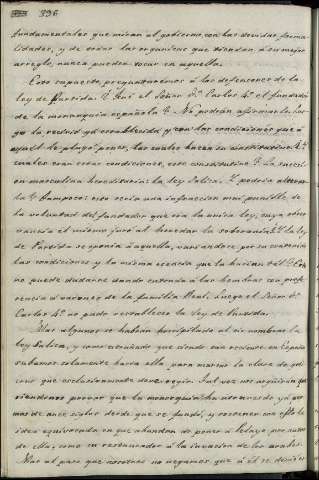 396
fundamentales que miran al gobierno, con las devidas forma-
lidades, y de todas las organicas que tiendan á su mejor
arreglo, nunca pueden tocar en aquella.
Esto supuesto preguntaremos á los defensores de la
ley de Partida: ¿Fué el Señor Dn. Carlos 4º. el fundador
de la monarquia española? No podrán afirmarlo. Lue-
go la recibió ya establecida y con las condiciones que á
aquel le plugo poner, las cuales hacen su constitucion. ¿
cuales eran estas condiciones, esta constitucion? La succesi-
on masculina hereditaria: la ley Salica. ¿Podria alterar-
la? Tampoco: esto seria una infraccion muy punible, de
la voluntad del fundador que era la unica ley, cuya obser-
vancia el mismo juró al heredar la soberania. Y la ley
de Partida se oponia á aquella, variandore por su contrario
las condiciones y la misma esencia que la hacian tal? Esto
no puede dudarse dando entrada á las hembras con prefe-
rencia á varones de la familia Real. Luego el Señor Dn.
Carlos 4º. no pudo restablecer la ley de Partida.
Mas algunos se habran horripilado al oir nombrar la
ley Salica, y como
subamos solamente hasta ella, para marcar la clase de go-
vierno que esclusivamente deve regir. Tal vez nos argüiran que
viendonos provar que la monarquia ha atravesado ya por
mas de once siglos desde que se fundó, y sostener con esto la
idea equivocada en que abundan de poner á Pelayo por autor
de ella, como su restaurador á la invacion de los arabes.
Mas al paso que nosotros no negamos que á él se deviese